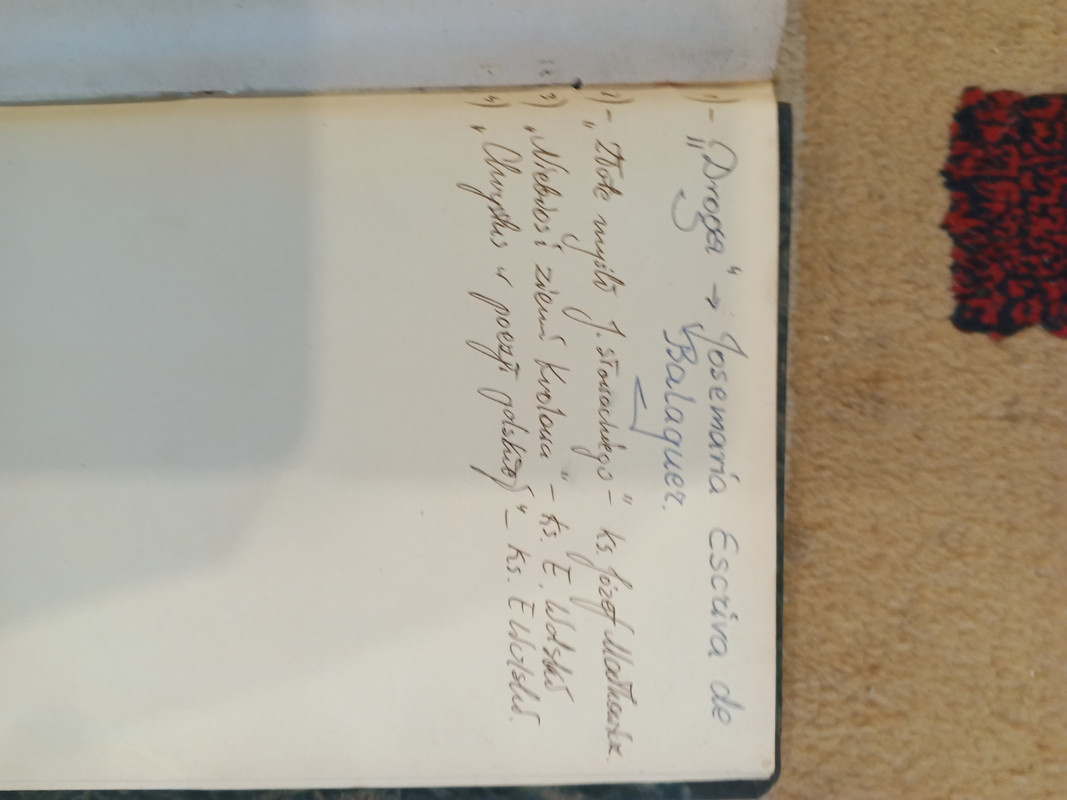 1) - „Droga" → Josemaria Escriva de
Balaguer.
2) - „Złote myśli J. Słowackiego" - ks. Józef
3) „Niebios i ziemi Królowa" - ks. E. Wolski
4) „Chrystus w poezji polskiej" - ks. E Wolski.